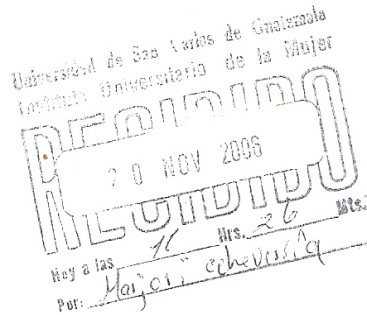 Universidad de San Carlos de Guatemala
Instituto Universitario de la Mujer
RECIBIDO
20 NOV 2006
RECIBIDO
Hoy a las 11 Hrs. 26 Mts.
Por: Marjori echeverría